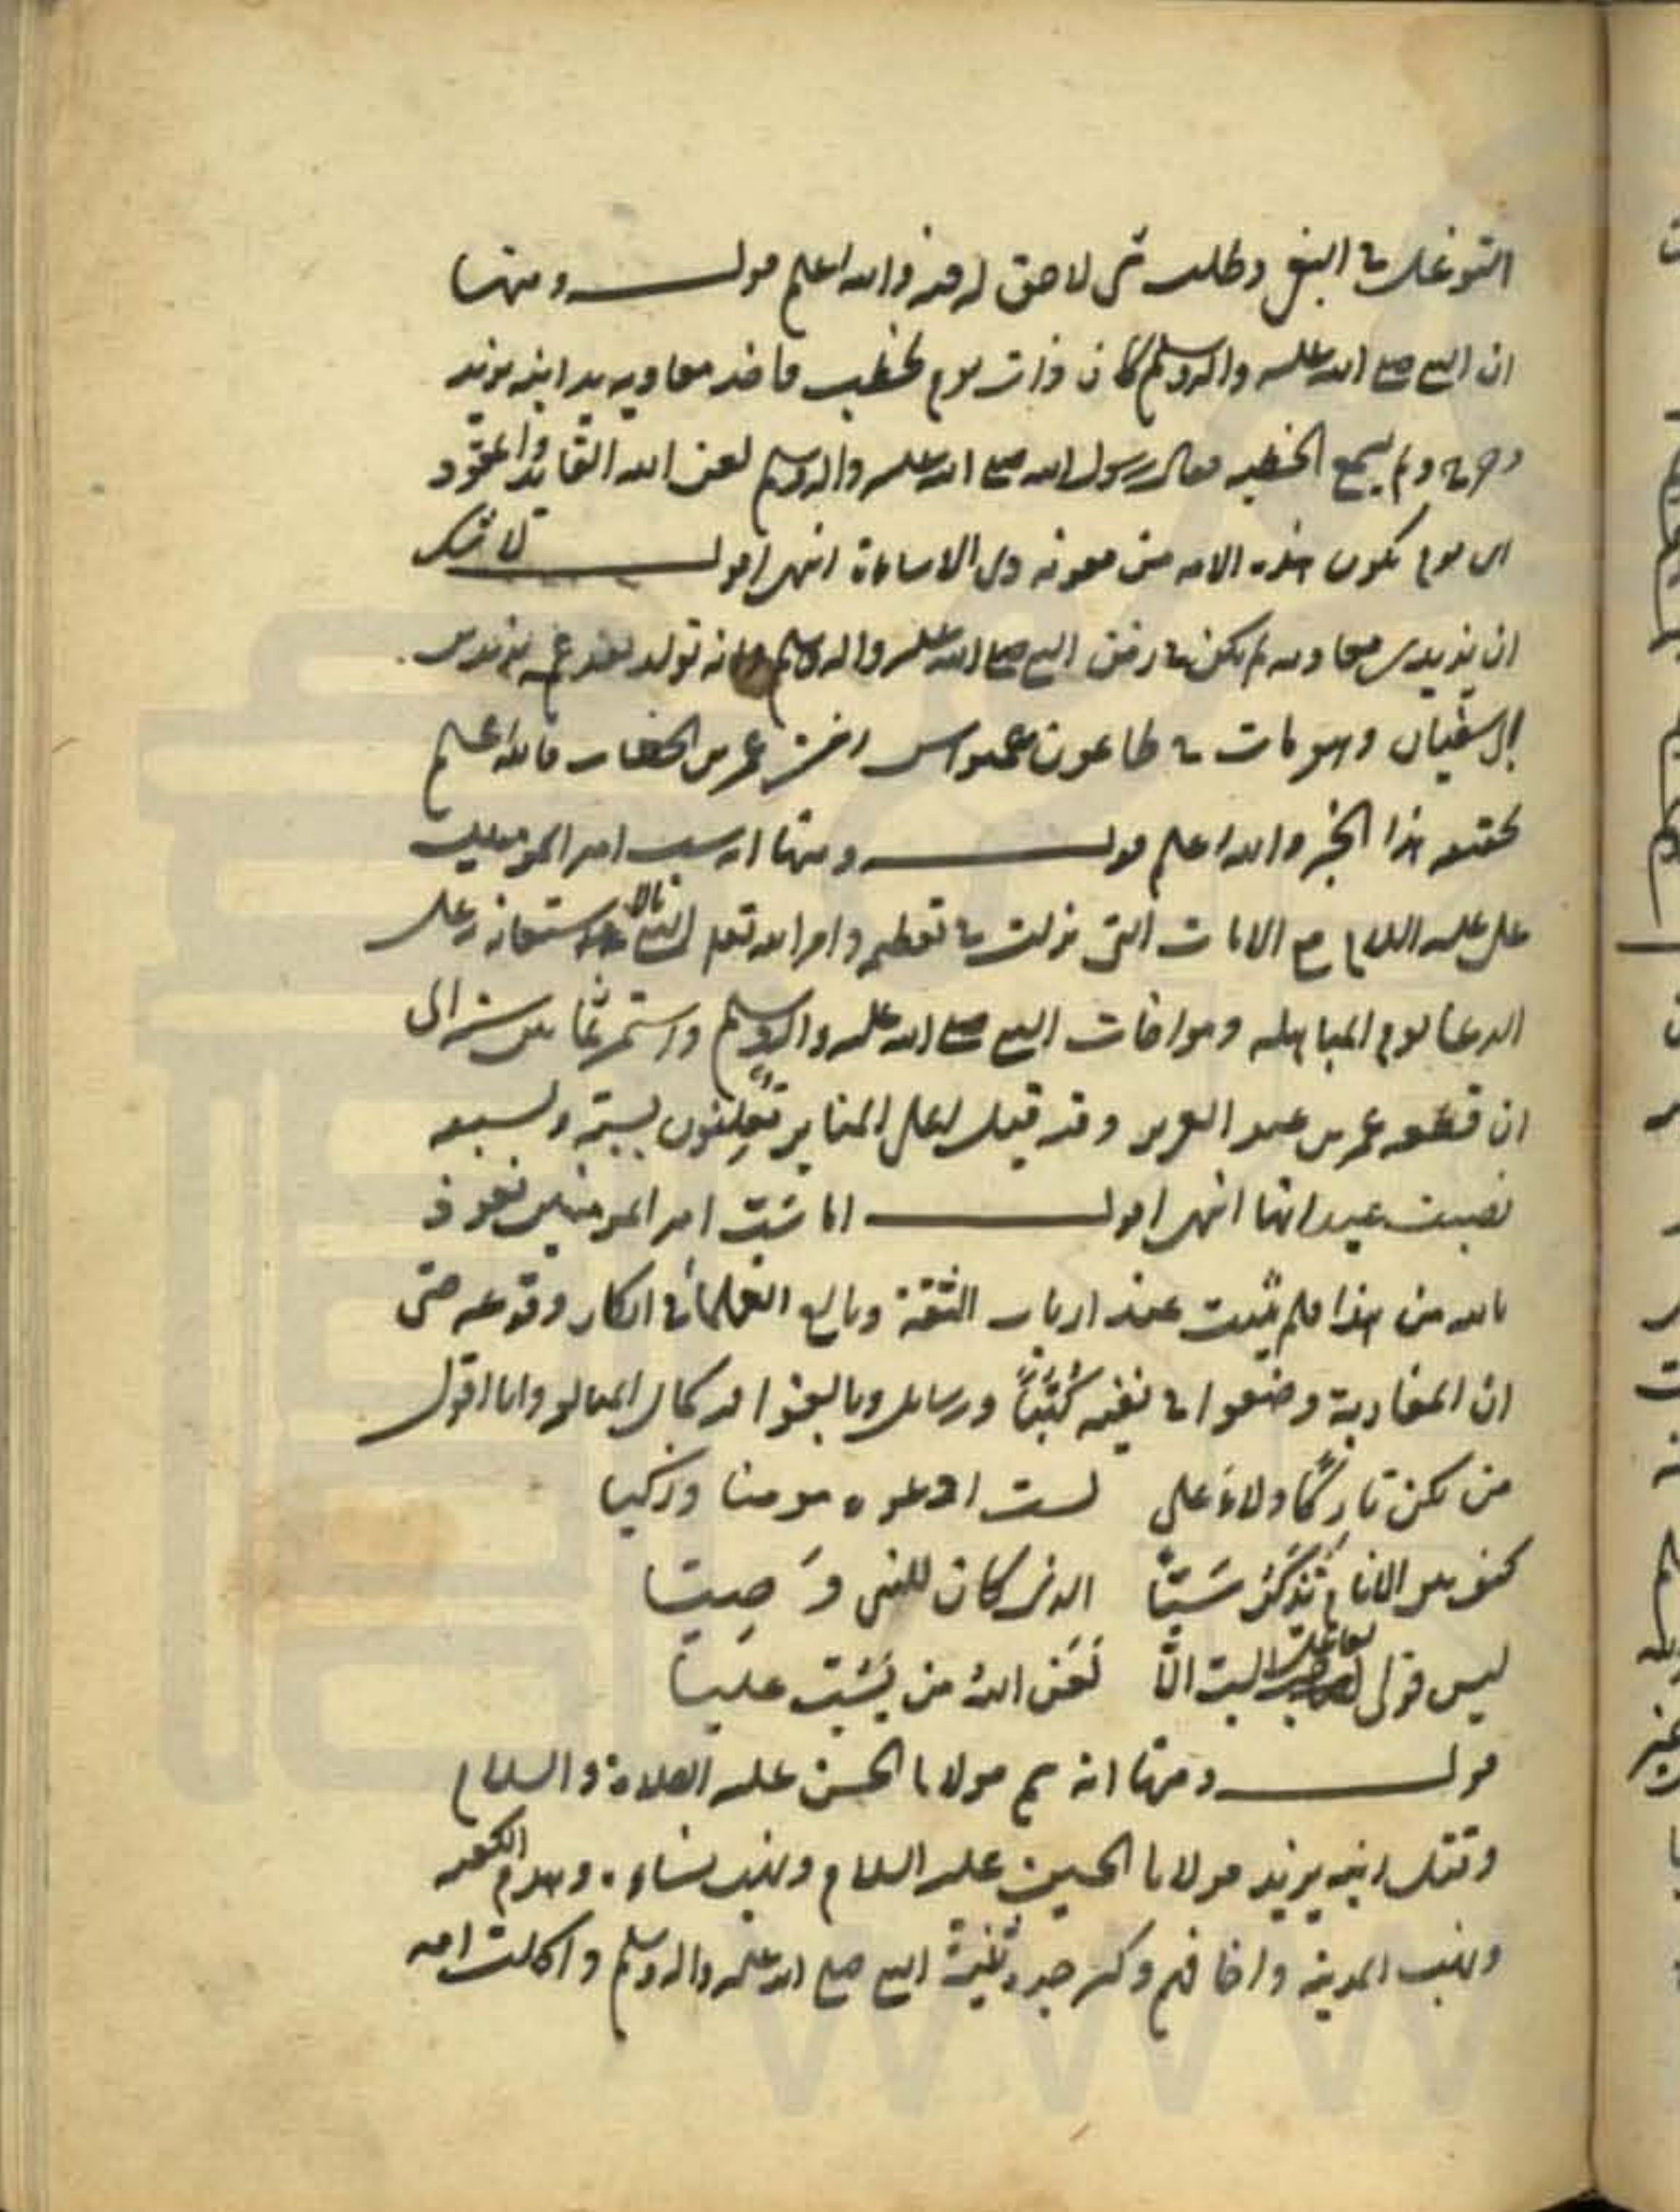 التوغل في البغي وطلب شي لا حق له فيه والله اعلم قوله ومنها
ان النبي صلى الله عليه واله وسلم كان ذات يوم يخطب فاخذ معاويه يد ابنه يزيد
وخرج ولم يسمع الخطبه فقال رسول الله صلى الله عليه واله وسلم لعن الله القايد والمقود
اي يوم يكون هذه الامه من معويه ذي الاساءة انتهى اقول لا شك
ان يزيد بن معاويه لم يكن في زمن النبي صلى الله عليه واله وسلم وانه تولد بعد يزيد بن
ابي سفيان وهو مات في طاعون عمواس زمن عمر بن الخطاب فالله اعلم
بحقيقه هذا الخبر والله اعلم قوله ومنها انه سب امير المومنين
علي عليه السلام مع الايات التي نزلت في تعظيمه وامر الله تعالى النبي بالاستعانه على
الدعا يوم المباهله ومواخات النبي صلى الله عليه واله وسلم واستمر ثمانين سنه الى
ان قطعه عمر بن عبد العزيز وقد قيل اعلى المنابر تعلنون بسبّه وبسيفه
نصبت عيدانها انتهى اقول اما سَبّ امير المومنين نعوذ
بالله من هذا فلم يثبت عند ارباب الثقة وبالغ العلماء في انكار وقوعه حتى
ان المغاربة وضعوا في نفيه كُتُبًا ورسايل وبالغوا فيه كمال المبالغه وانا اقول
من يكن تاركًا ولاءَ علي لست ادعوه مومنا وزكيا
كيف بين الانام يُذكَرُ سَبًّا الذي كان للنبي وَصِيّا
ليس قولي لفاعل السب الّا لَعَنَ اللهُ من يَسُبّ عليّا
قوله ومنها انه سم مولانا الحسن عليه الصلاة والسلام
وقتل ابنه يزيد مولانا الحسين عليه السلام ونهب نساءه وهدم الكعبه
ونهب المدينه واخافهم وكسر جده ثنيّة النبي صلى الله عليه واله وسلم واكلت امه